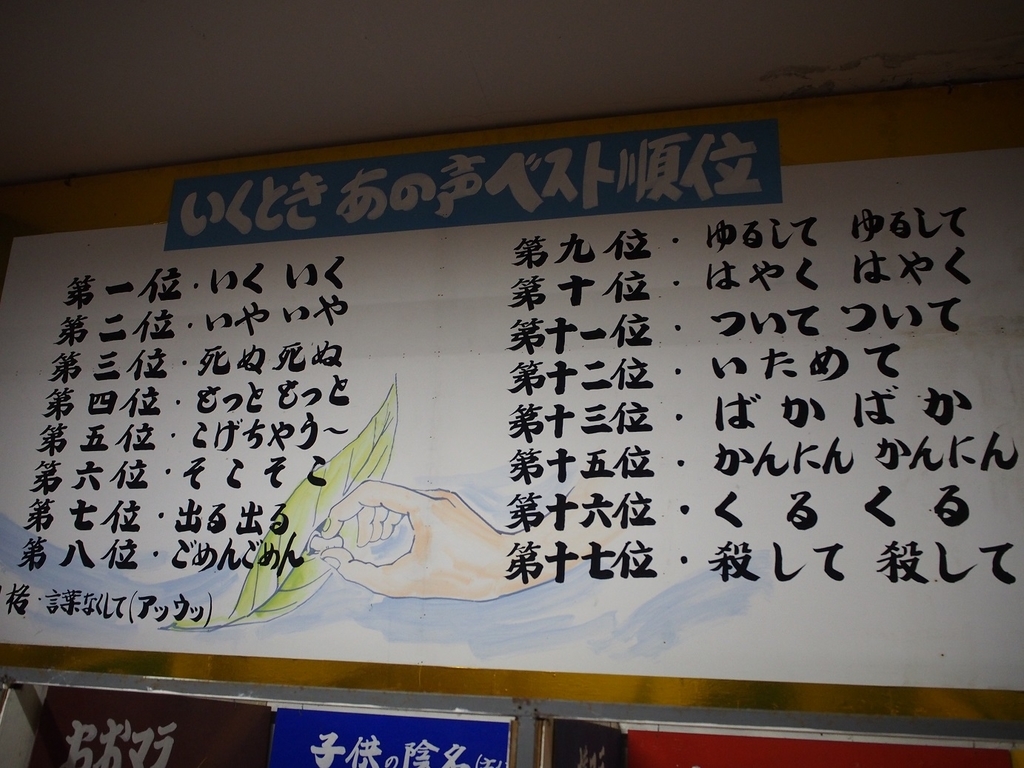 いくとき あの声ベスト順位
第一位・いく いく
第二位・いや いや
第三位・死ぬ 死ぬ
第四位・もっと もっと
第五位・こげちゃう〜
第六位・そこ そこ
第七位・出る 出る
第八位・ごめんごめん
格・言葉なくして(アッウッ)
第九位・ゆるして ゆるして
第十位・はやく はやく
第十一位・ついて ついて
第十二位・いためて
第十三位・ばか ばか
第十五位・かんにん かんにん
第十六位・くる くる
第十七位・殺して 殺して
おおマラ
子供の陰名